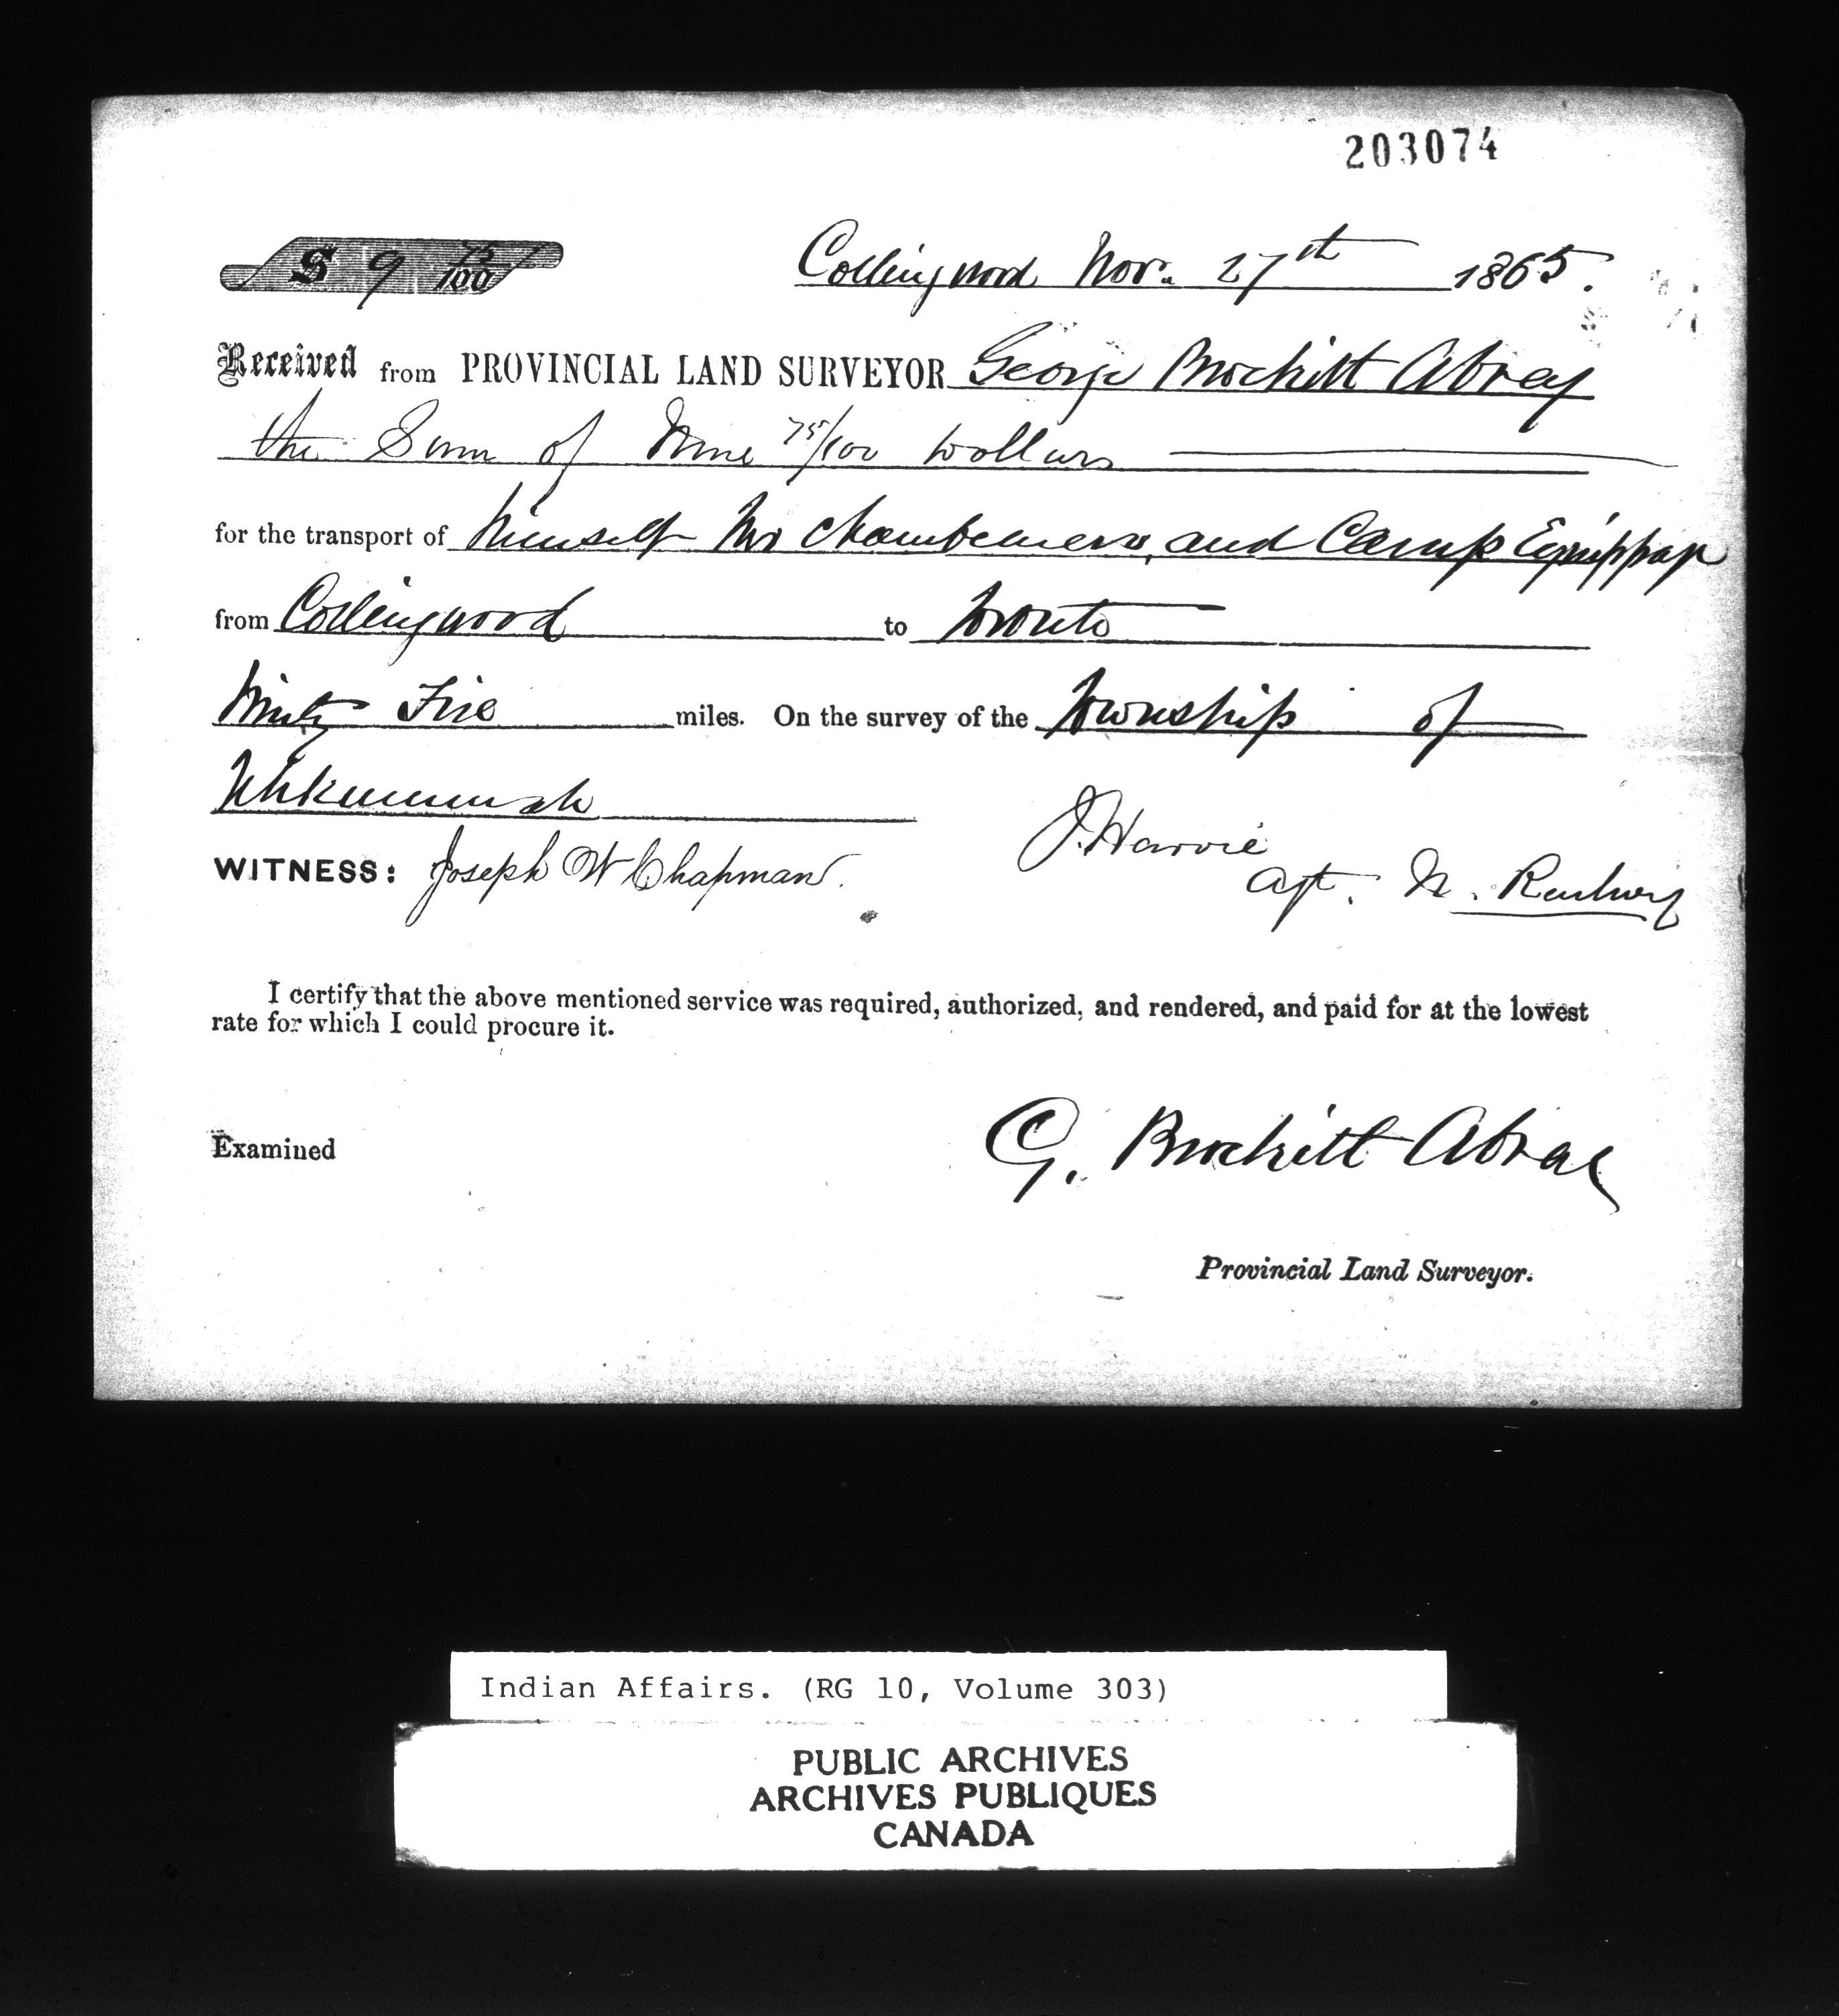 203074
$ 9 75/100 Collingwood Nov. 27th 1865.
Received from PROVINCIAL LAND SURVEYOR George Brockitt Abrey
the Sum of Nine 75/100 Dollars
for the transport of himself two chainbearers, and Camp Equippage
from Collingwood to Toronto
Ninty Five miles. On the survey of the Township of
Tehkummah
WITNESS: Joseph W Chapman. J. Harvie
Agt. N. Railway
I certify that the above mentioned service was required, authorized, and rendered, and paid for at the lowest
rate for which I could procure it.
Examined G. Brockitt Abrey
Provincial Land Surveyor.
Indian Affairs. (RG 10, Volume 303)
PUBLIC ARCHIVES
ARCHIVES PUBLIQUES
CANADA